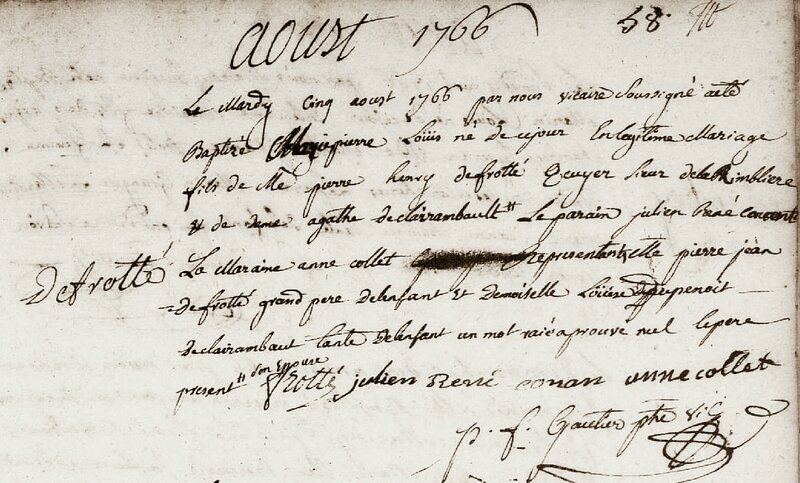 aoust 1766 58
Le Mardy Cinq aoust 1766 par nous vicaire soussigné aeté
Baptizé pierre Loüis né de ce jour En legitime Mariage
fils de Me pierre henry defrotté Ecuyer sieur delaRimbliere
& de dame agathe declairambault Le parain julien René
La Maraine anne collet Representant pierre jean
Defrotté
defrotté grand pere delenfant Et Demoiselle Loüise
declairambaut tante delenfant un mot raié aprouvé nul le pere
present son Epouse
Frotté julien René conan anne collet
p. f. Gautier ptre vic